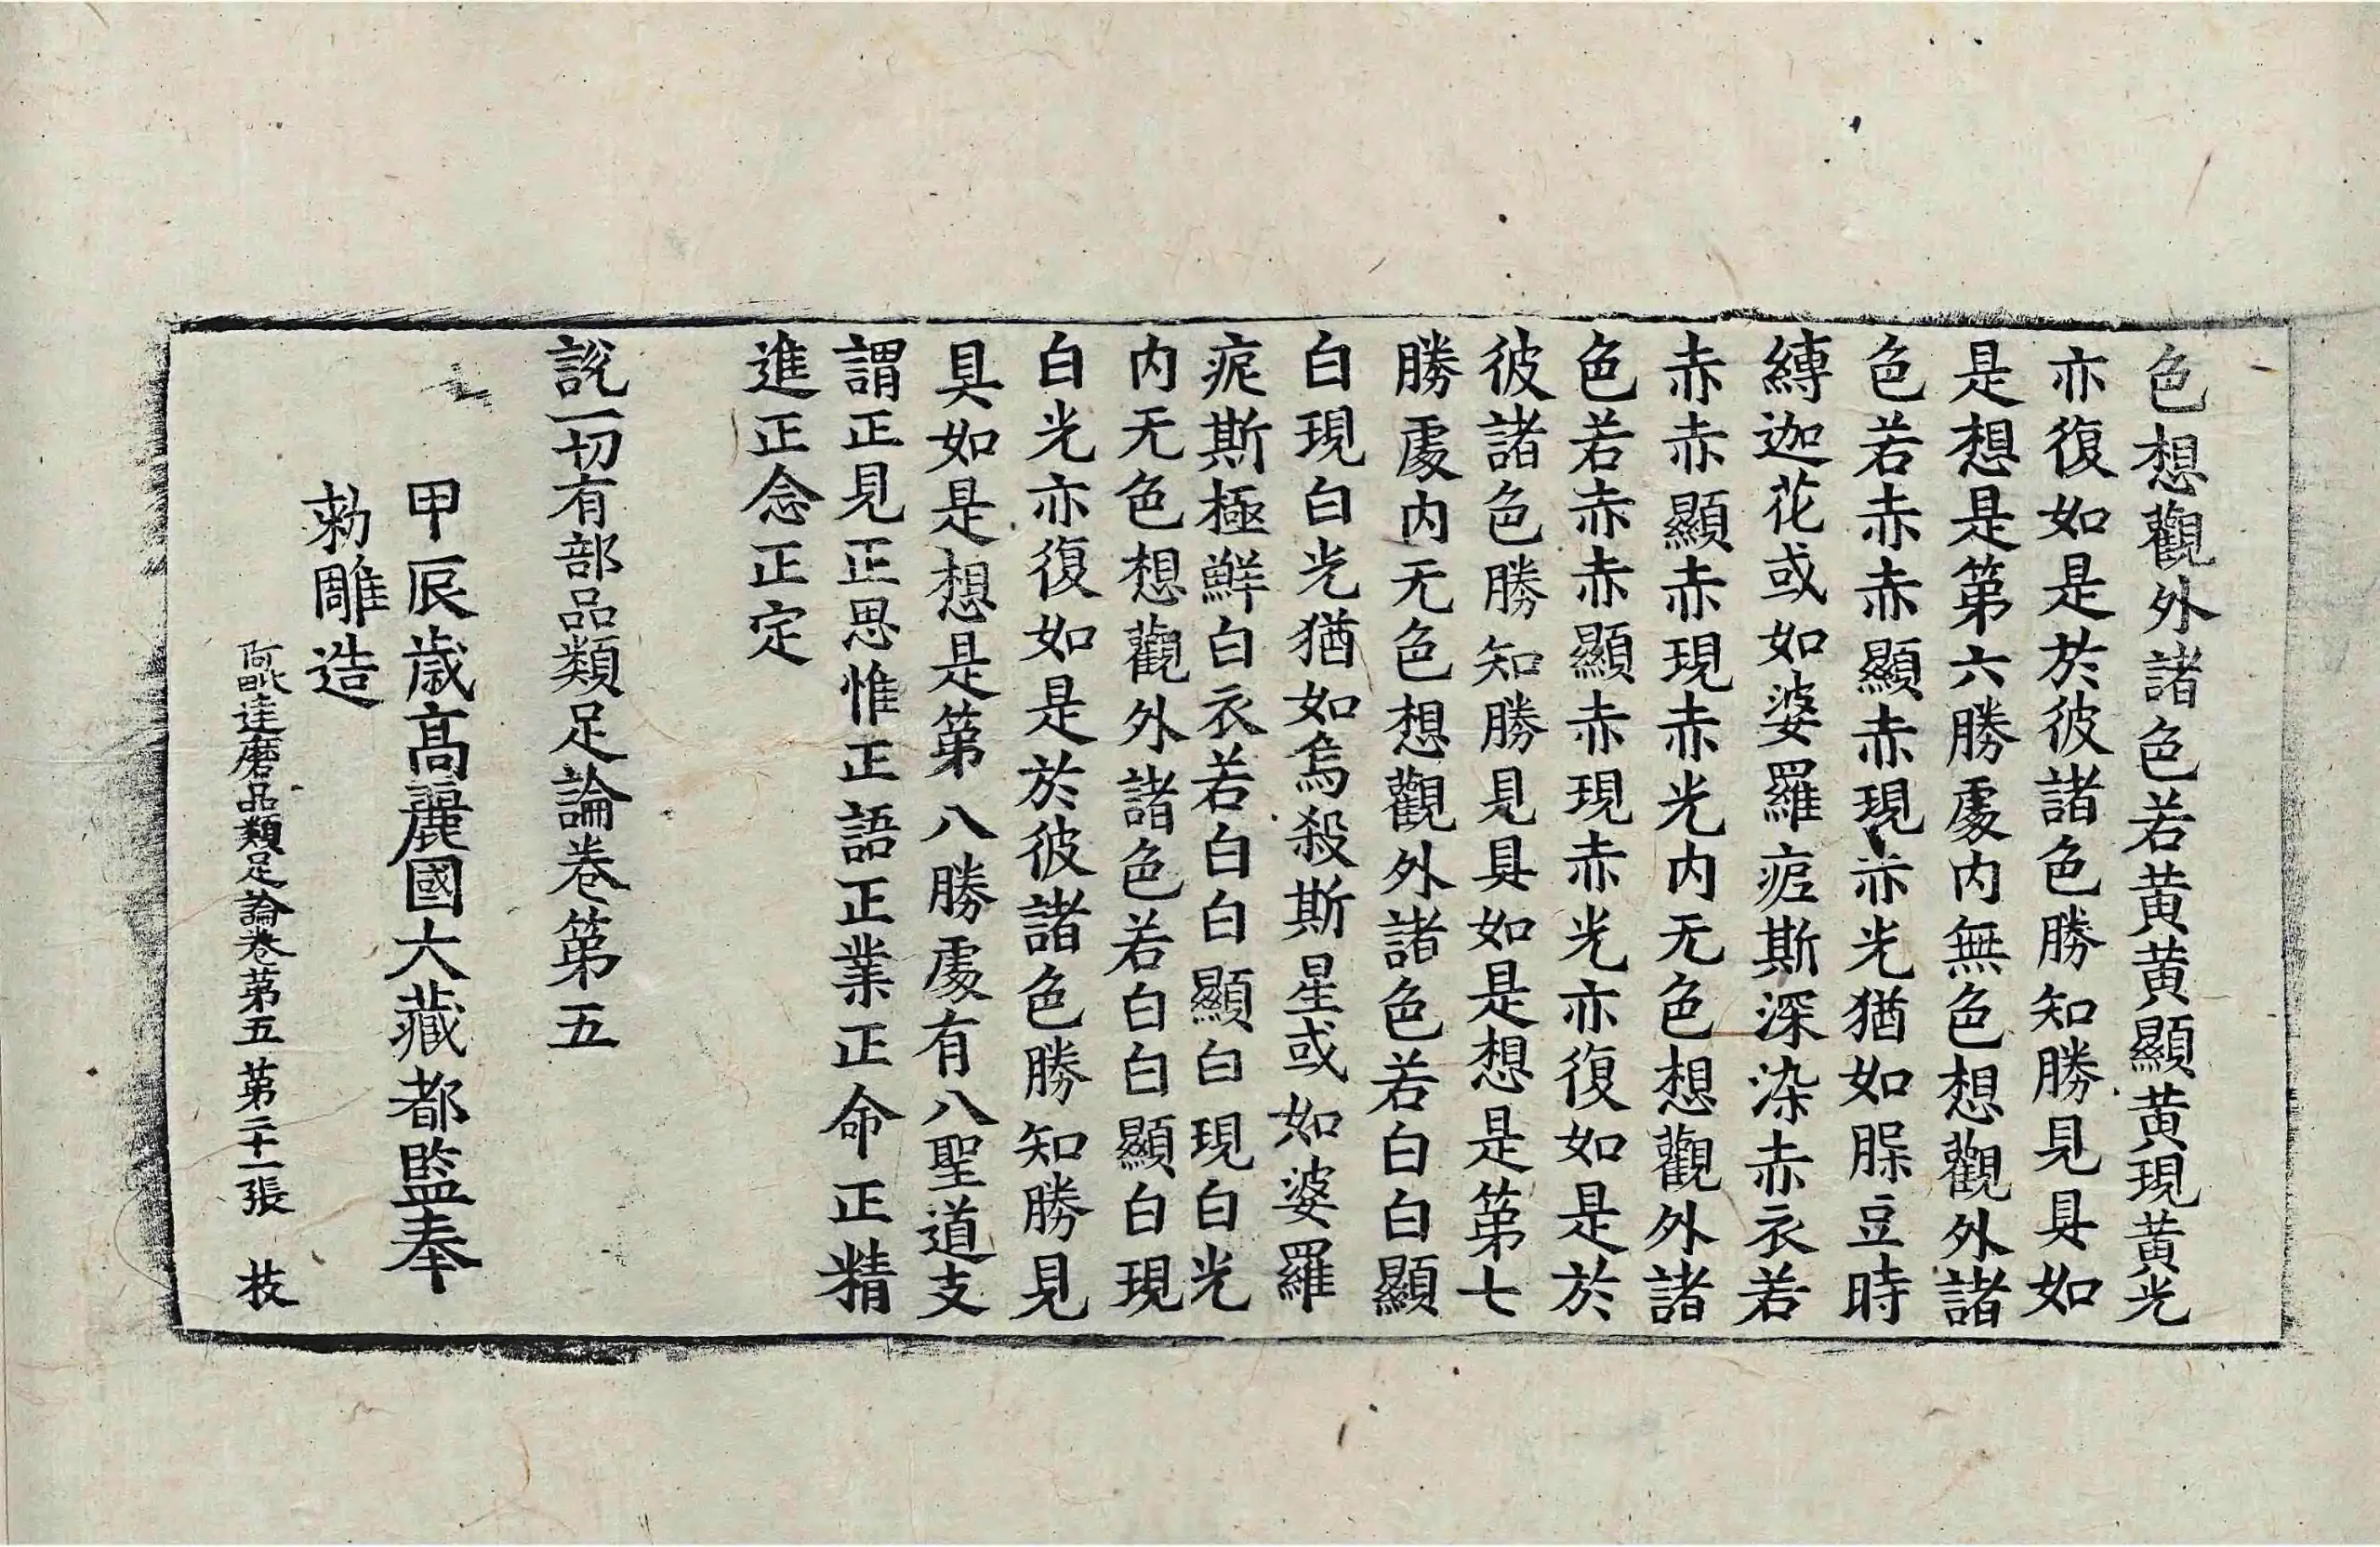 色想觀外諸色若黄黄顯黄現黄光
亦復如是於彼諸色勝知勝見具如
是想是第六勝處内無色想觀外諸
色若赤赤顯赤現赤光猶如杲豆時
縛迦花或如婆羅痆斯深染赤衣若
赤赤顯赤現赤光内无色想觀外諸
色若赤赤顯赤現赤光亦復如是於
彼諸色勝知勝見具如是想是第七
勝處内无色想觀外諸色若白白顯
白現白光猶如烏殺斯星或如婆羅
痆斯極鮮白衣若白白顯白現白光
内无色想觀外諸色若白白顯白現
白光亦復如是於彼諸色勝知勝見
具如是想是第八勝處有八聖道支
謂正見正思惟正語正業正命正精
進正念正定
說一切有部品類足論卷第五
甲辰歲高麗國大藏都監奉
勅雕造
阿毗達磨品類足論卷第五 第二十一張 技